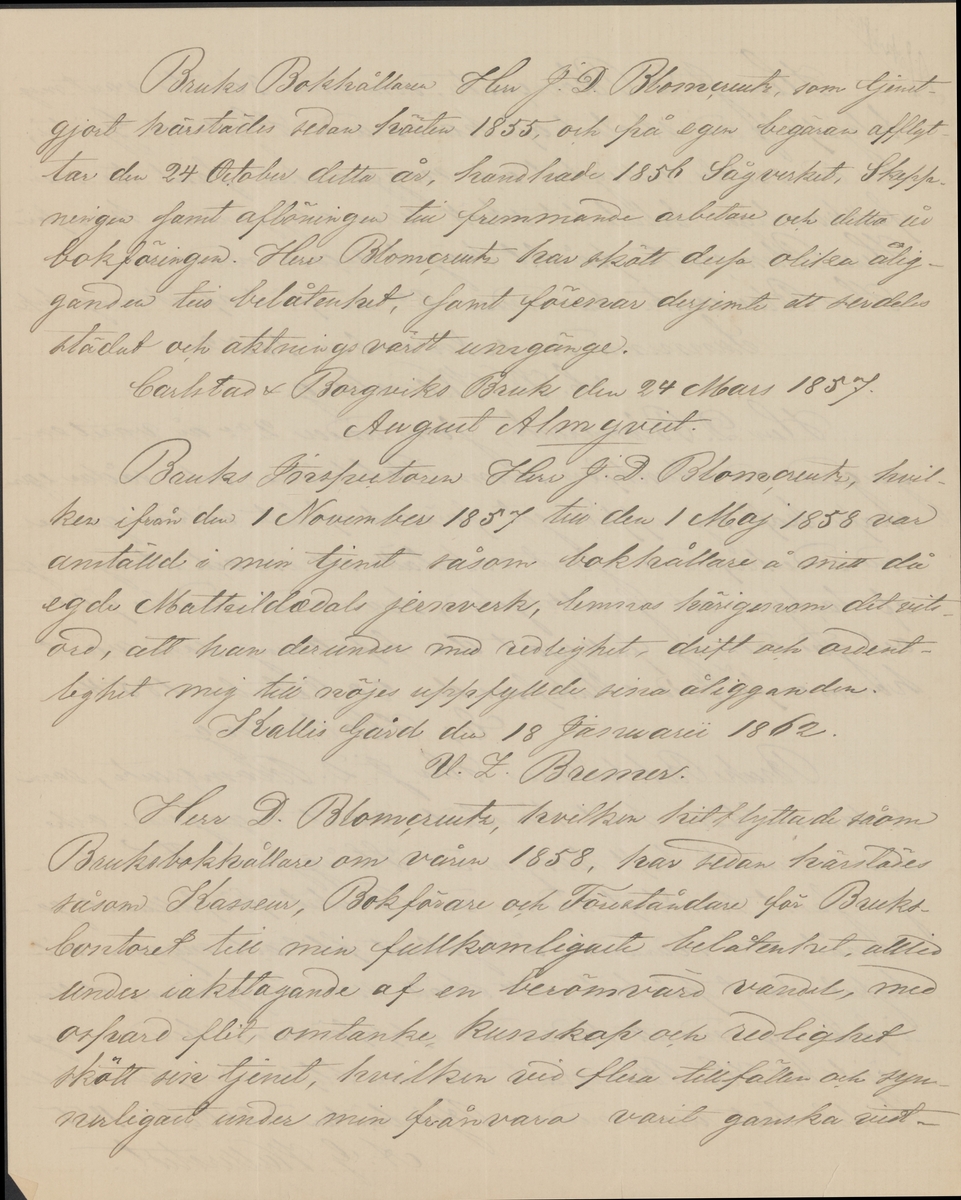 Bruks Bokhållaren Herr J. D. Blomcreutz, som tjenst-
gjort härstädes sedan hösten 1855, och på egen begäran afflyt-
tar den 24 October detta år, handhade 1856 Sågverket, Skepp-
ningen samt aflöningen till fremmande arbetare och detta år
bokföringen. Herr Blomcreutz har skött dessa olika ålig-
ganden till belåtenhet, samt förenar derjemte ett serdeles
städat och aktningsvärdt umgänge.
Carlstad & Borgviks Bruk den 24 Mars 1857.
August Almqvist.
Bruks Inspectoren Herr J. D. Blomcreutz, hvil-
ken ifrån den 1 November 1857 till den 1 Maj 1858 var
anställd i min tjenst såsom bokhållare å mitt då
egde Mathildædals jernverk, lemnas härigenom det vits-
ord, att han derunder med redlighet, drift och ordent-
lighet mig till nöjes uppfyllde sina åligganden.
Kallis Gård den 18 Januarii 1862.
V. Z. Bremer.
Herr D. Blomcreutz, hvilken hitflyttade såsom
Bruksbokhållare om våren 1858, har sedan härstädes
såsom Kasseur, Bokförare och Föreståndare för Bruks-
Contoret till min fullkomligaste belåtenhet, alltid
under iakttagande af en berömvärd vandel, med
ospard flit, omtanke, kunskap och redlighet
skött sin tjenst, hvilken vid flera tillfällen och syn-
nerligast under min frånvara varit ganska vidt-